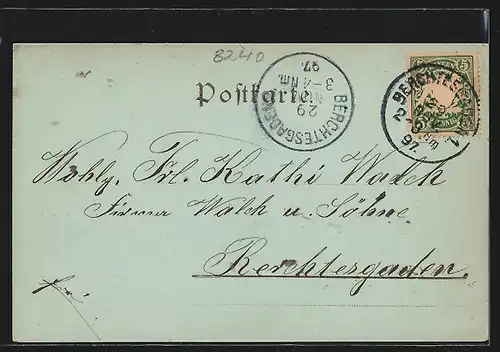 8240
Postkarte.
BERCHTESGADEN
29
3-4 Nm.
97.
BERCHTESGADEN
97
5
Wohlg. Frl. Kathi Walch
Firma Walch u. Söhne
Berchtesgaden.